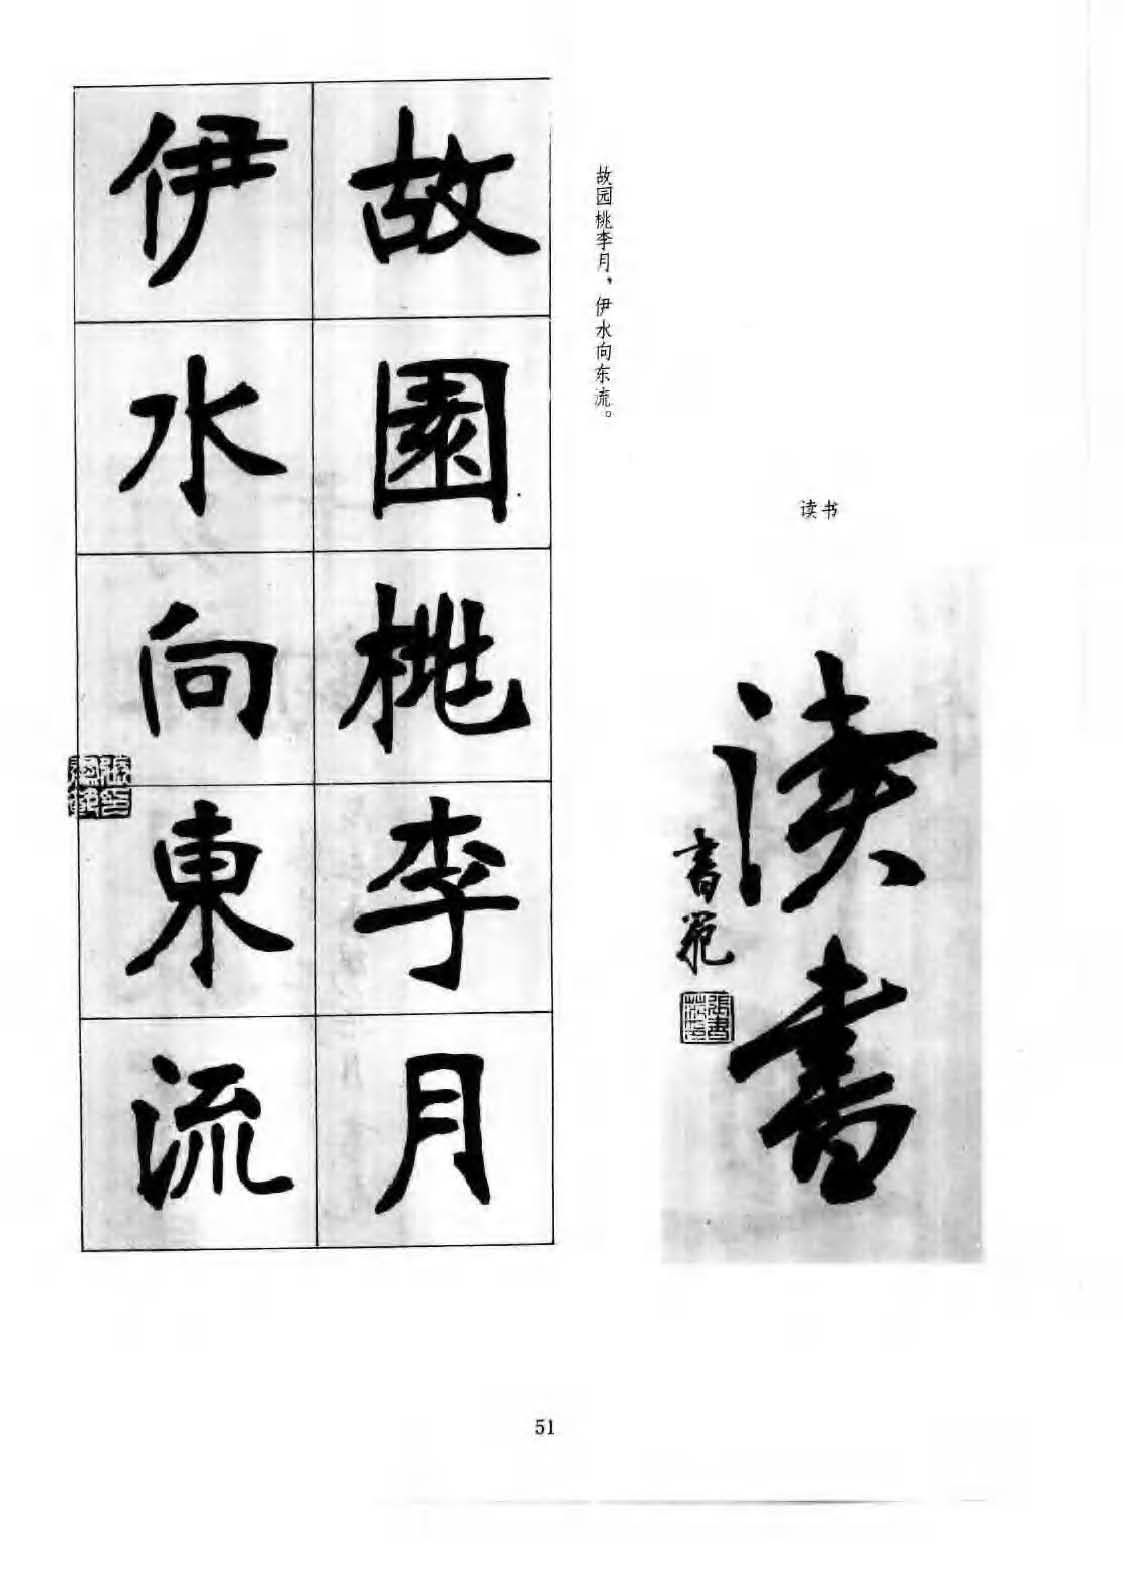 读书
读书
書苑
張書范印
故园桃李月，伊水向东流。
故園桃李月
伊水向東流